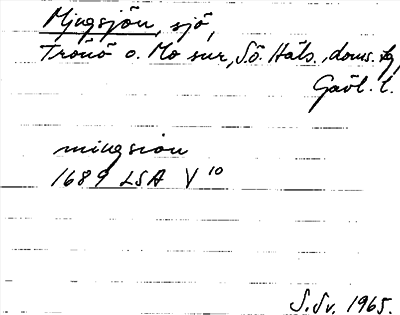 Mjugsjön, sjö,
Trönö o. Mo snr, Sö. Häls., doms. sg,
Gävl. l.
miugsion
1689 LSA V 10
S. Sv. 1965.